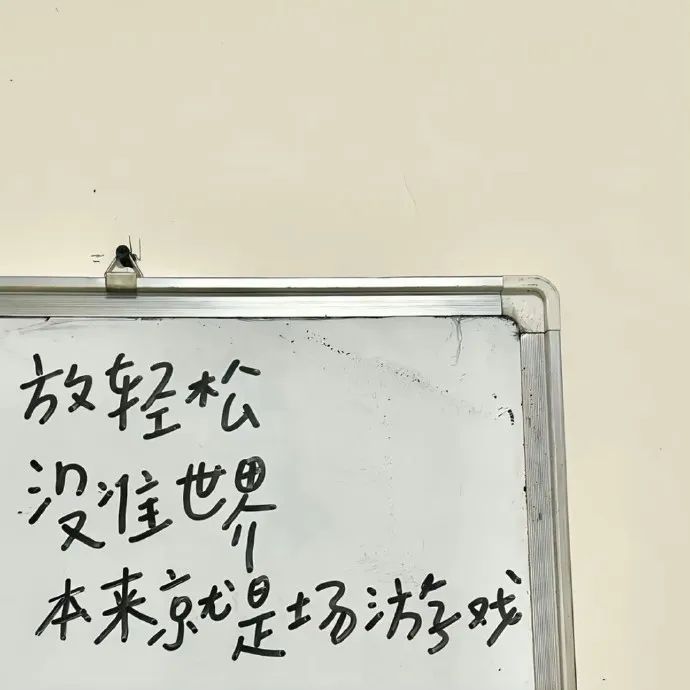 放轻松
没准世界
本来就是场游戏